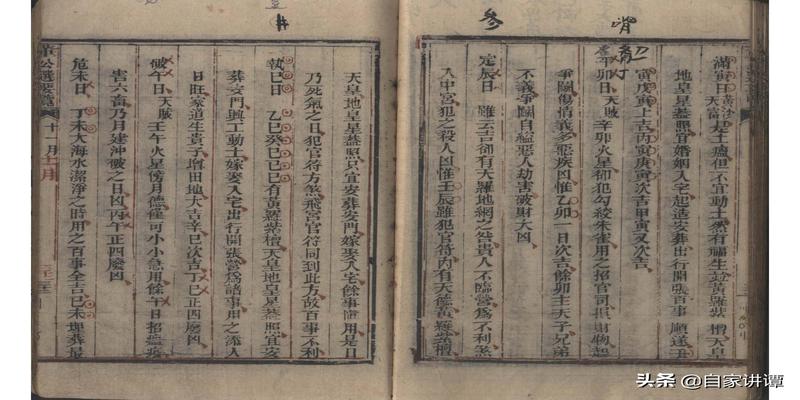 滿寅日 黃沙 天富 是土瘟但不宜動土然有福生黃羅紫檀天皇
地皇星蓋照宜婚姻入宅起造安葬出行開張百事順遂壬
寅戊寅上吉丙寅庚寅次吉甲寅又次吉
平卯日 天賊 辛卯火星卻犯勾絞朱雀用之招官司損財物起
爭鬪傷情義多惡疾凶惟乙卯一日次吉餘卯主天子兄弟
不義爭鬪自縊惡人劫害破財大凶
定辰日 雖云吉卻有天羅地網之咎貴人不臨營爲不利煞
入中宮犯之殺人凶惟壬辰雖犯官符內有天德黃羅紫檀
天皇地皇星蓋照只宜安葬安門嫁娶入宅餘事慎用是日
乃死氣之日犯官符方煞飛宮官符同到此方故百事不利
執巳日 乙巳癸巳己巳有黃羅紫檀天皇地皇星蓋照宜安
葬安門興工動土嫁娶入宅出行開張營爲諸事用之添人
口旺家道生貴子增田地大吉辛巳次吉丁巳正四廢凶
破午日 天賊 壬午火星傍月德僅可小小急用餘午日招瘟疫
害六畜乃月建沖破之日凶丙午正四廢凶
危未日 丁未大海水潔淨之時用之百事全吉己未埋葬最
董公選要覽 十一月
頭条 @自家讲谭